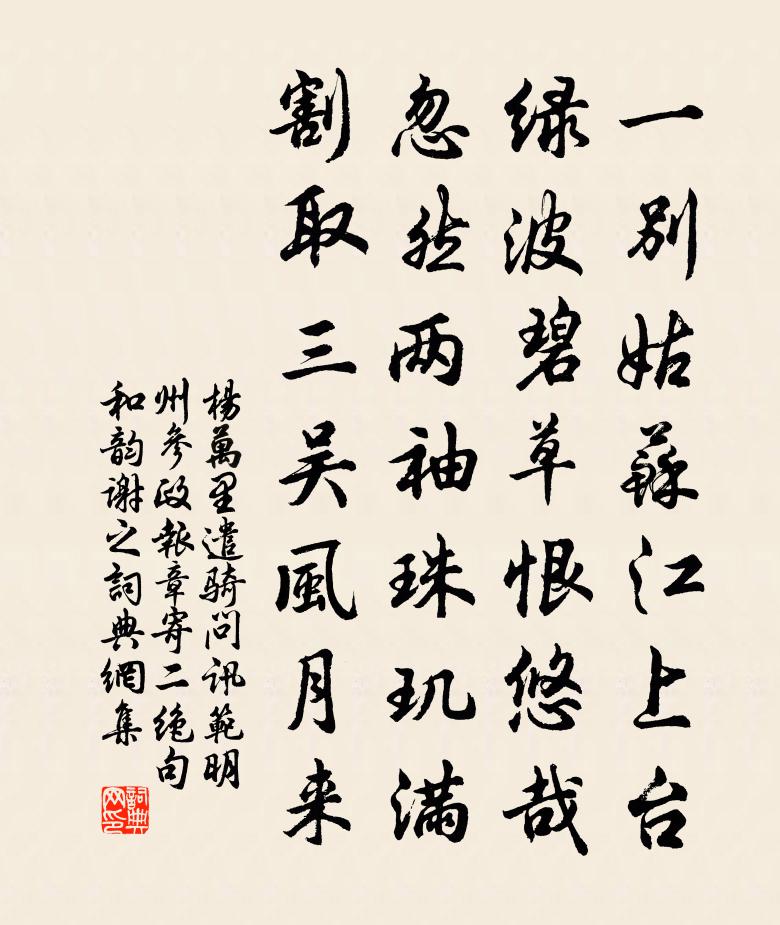 一别姑蘇江上台
绿波碧草恨悠哉
忽然两袖珠玑满
割取三吴風月来
楊萬里遣骑问讯範明
州參政報章寄二绝句
和韵谢之詞典網集
詞典
网印